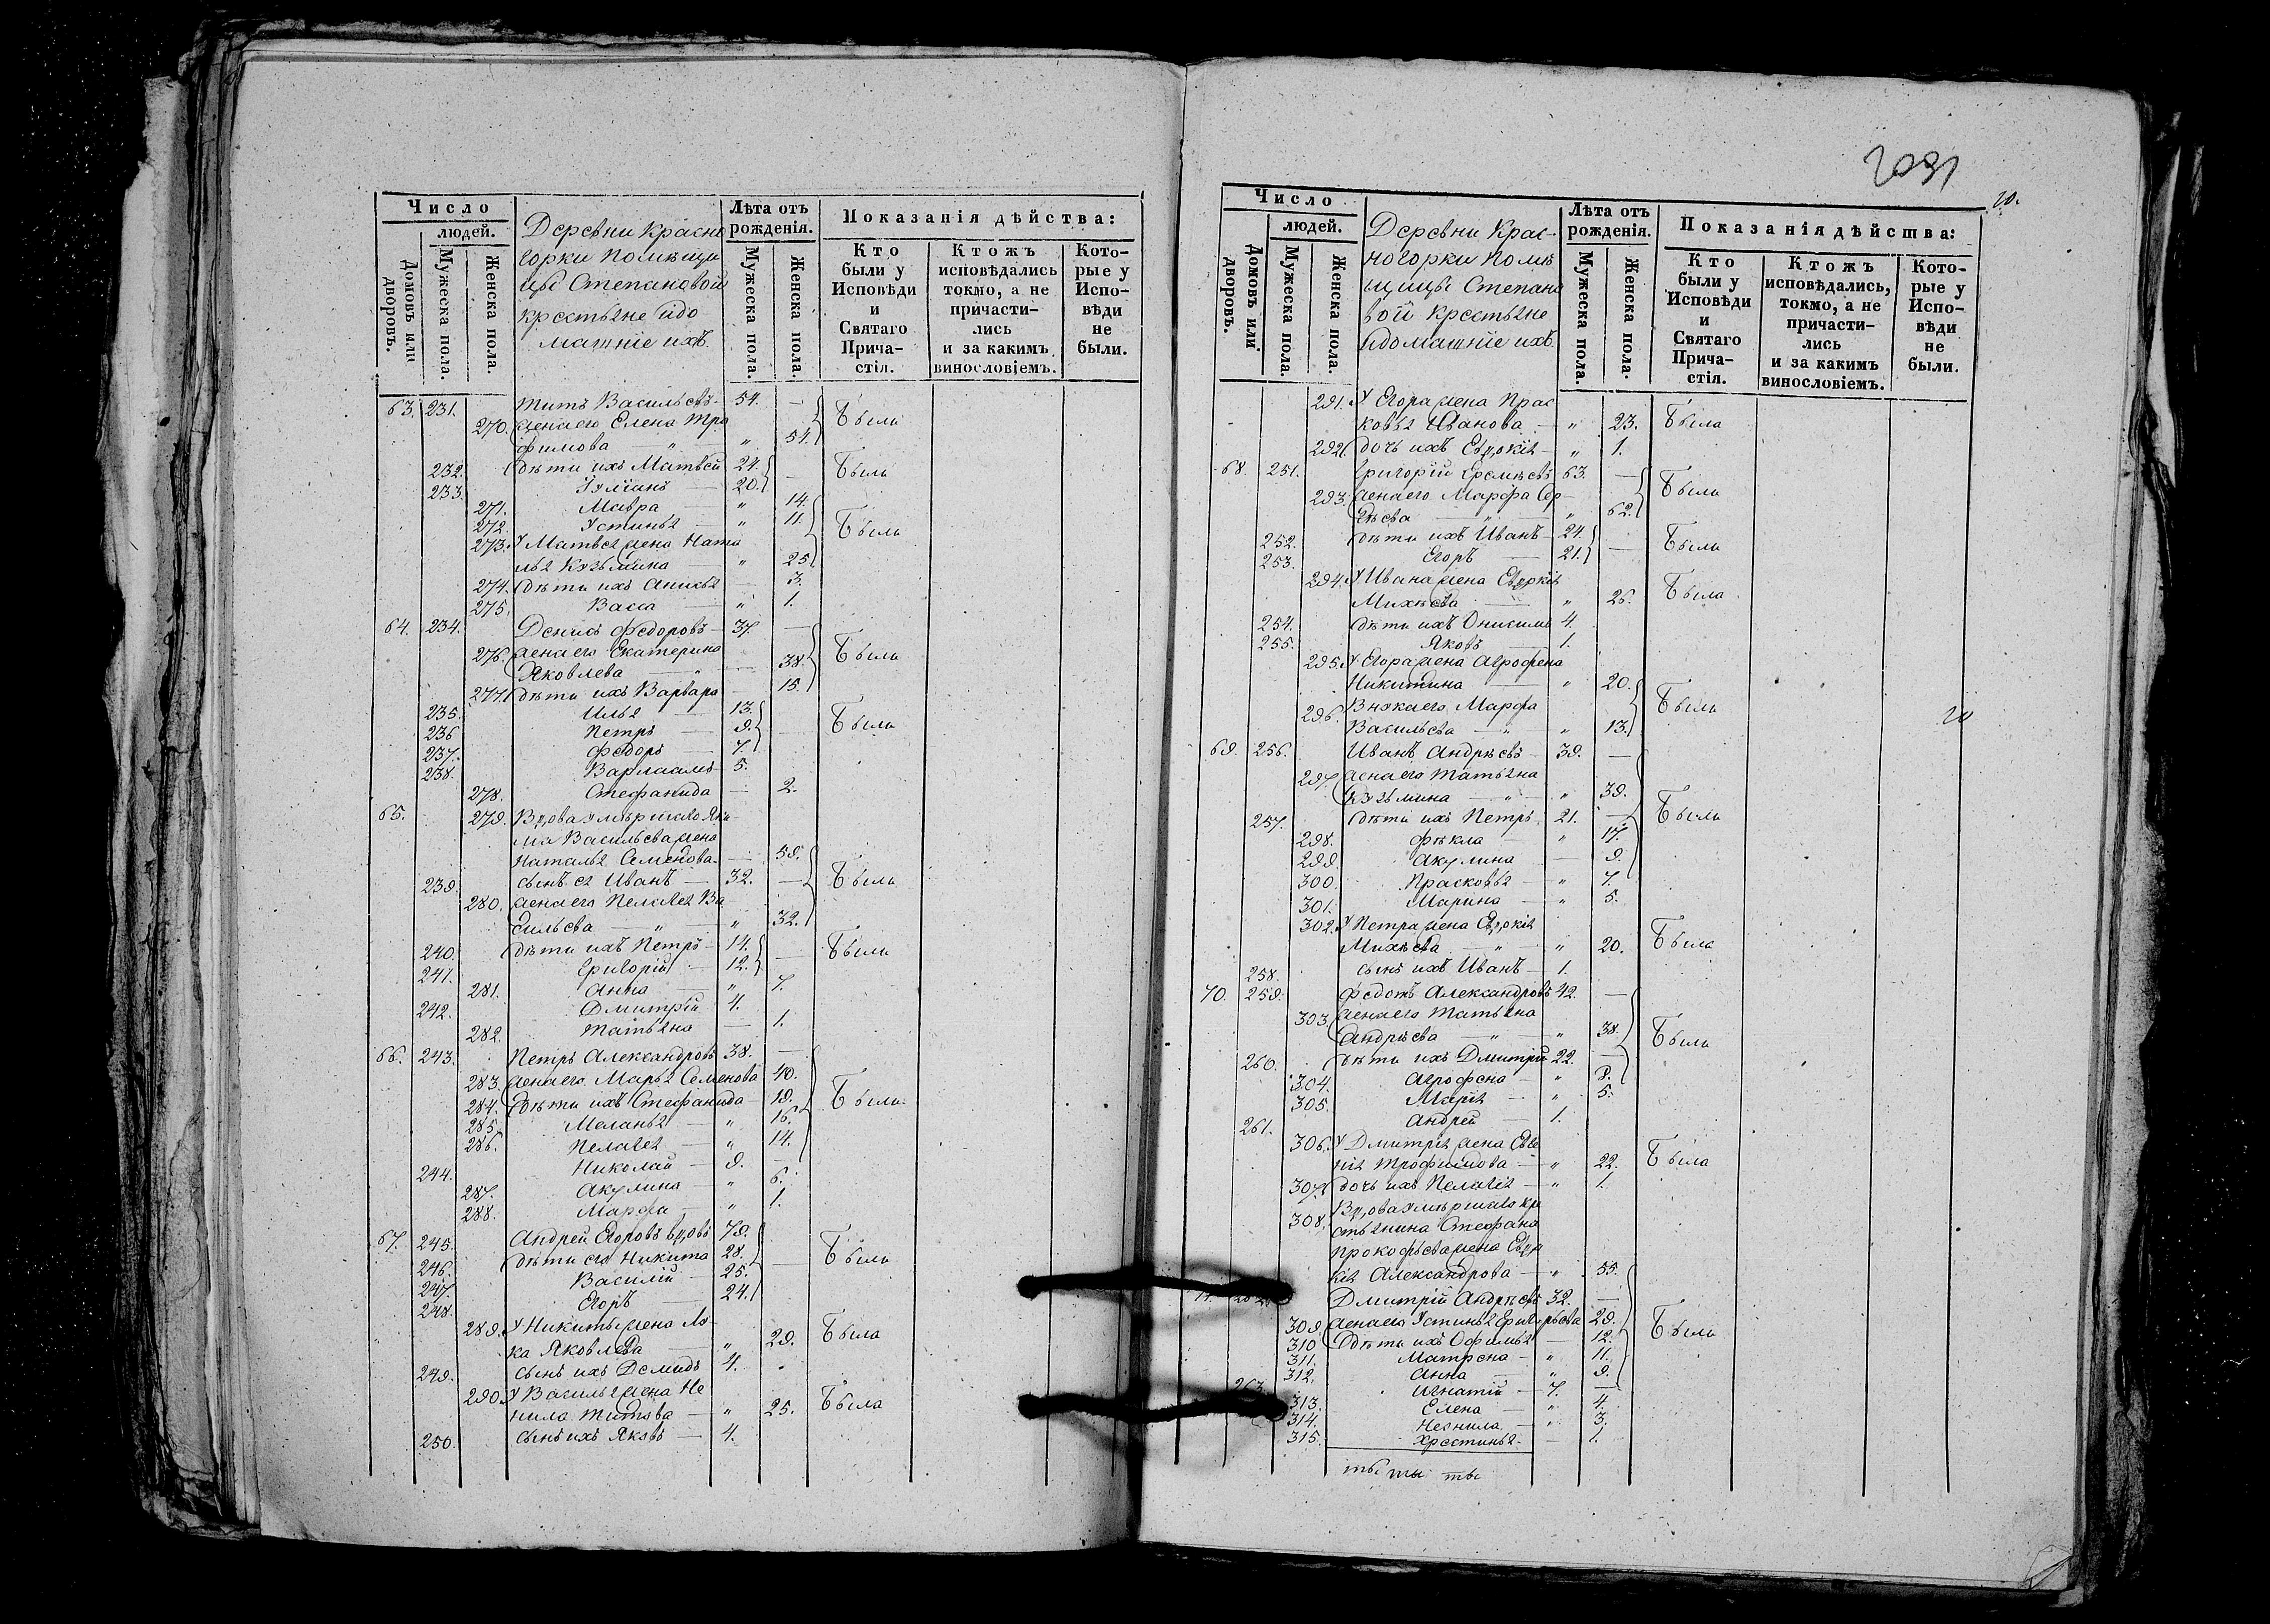 Число
людей.
Домовъ или дворовъ.
Мужеска пола.
Женска пола.
Деревни Красно
горки Помѣщи
цы Степановой
крестьяне идо
машніе ихъ
Лѣта отъ рожденія.
Мужеска пола.
Женска пола.
Показанія дѣйства:
Кто были у Исповѣди и Святаго Причастія.
Ктожъ исповѣдались токмо, а не причастились и за какимъ винословіемъ.
Которые у Исповѣди не были.
63. 231. Титъ Васильевъ 54. —
270. жена его Елена Тро
фимова — " " 54. Были
232. дѣти ихъ Матвей 24. — Были
233. Уліанъ — 20.
271. Мавра — " 14.
272. Устинья — " 11. Были
273. У Матвея жена Ната
лья Кузьмина — " 25.
274. дѣти ихъ Анисья — 3.
275. Васса — " 1.
64. 234. Денисъ Федоровъ 37. —
276. жена его Екатерина
Яковлева — 38. Были
277. дѣти ихъ Варвара — 15.
235. Илья — 13.
236 Петръ — 9. — Были
237. Федоръ — 7.
238. Варлаамъ 5.
278. Стефанида — 2.
65. 279. Вдова умершаго Яки
ма Васильева жена
Наталья Семенова — 59.
239. сынъ ея Иванъ — 32. — Были
280. жена его Пелагея Ва
сильева — " " 32.
240. дѣти ихъ Петръ 14. — Были
241. Григорій — 12.
281. Анна — " 7.
242. Дмитрій 4.
282. Татьяна — 1.
66. 243. Петръ Александровъ 38. —
283. жена его Марья Семенова 40.
284. Дѣти ихъ Стефанида — 19. Были
285. Меланья — " 16.
286. Пелагея — " 14.
244. Николай — 9. —
287. Акулина — " 6.
288. Марфа — " 1.
67. 245. Андрей Егоровъ вдовъ 79.
246. дѣти его Никита 28. — Были
247. Василій — 25.
248. Егоръ — 24.
289. У Никиты жена Лу
ка Яковлева — " 29. Была
249. сынъ ихъ Демидъ 4.
290. У Василья жена Не
нила Титова — " 25. Была
250. сынъ ихъ Яковъ — 4.
2031
20.
Число
людей.
Домовъ или дворовъ.
Мужеска пола.
Женска пола.
Деревни Крас-
ногорки Помѣ
щицы Степано
вой Крестьяне
идомашніе ихъ
Лѣта отъ рожденія.
Мужеска пола.
Женска пола.
Показанія дѣйства:
Кто были у Исповѣди и Святаго Причастія.
Ктожъ исповѣдались, токмо, а не причастились и за какимъ винословіемъ.
Которые у Исповѣди не были.
291. У Егора жена Прас
ковья Иванова — " 23. Была
292. дочь ихъ Евдокія — " 1.
68. 251. Григорій Еремѣевъ 63. —
293. жена его Марфа Сер-
гѣева — " " 62. Были
252. дѣти ихъ Иванъ 24. — Были
253. Егоръ — 21.
294. У Ивана жена Евдокія
Михѣева — " 26. Была
254. дѣти ихъ Онисимъ 4.
255. Яковъ — 1.
295. У Егора жена Агрофена
Никитина — " 20. Были
296. Внука его Марфа
Васильева — " " 13.
20
69. 256. Иванъ Андрѣевъ 39. —
297. жена его Татьяна
Кузьмина — " " 39. Были
257. дѣти ихъ Петръ 21. —
298. Фекла — " 17.
299 Акулина — 9.
300. Прасковья — " 7.
301. Марина — " 5.
302. У Петра жена Евдокія
Михѣева — " " 20. Была
258. сынъ ихъ Иванъ — 1.
70. 259. Федотъ Александровъ 42. —
303. жена его Татьяна
Андрѣева — " " 38. Были
260. дѣти ихъ Дмитрій 22. —
304. Агрофена — " 8.
305. Марія — " 5.
261. Андрей — 1.
306. У Дмитрія жена Евге
нія Трофимова — " 22. Была
307. дочь ихъ Пелагія — " 1.
308. Вдова умершаго кре
стьянина Стефана
Прокофьева жена Евдо
кія Александрова — " 55.
Дмитрій Андрѣевъ 32. —
309. жена его Устинья Григорьева 29. Были
310 Дѣти ихъ Офимья — 12.
311. Матрена — " 11.
312. Анна — " 9.
263 Игнатій — 7. —
313. Елена — " 4.
314. Ненила — " 3.
315. Хрестинья — 1.